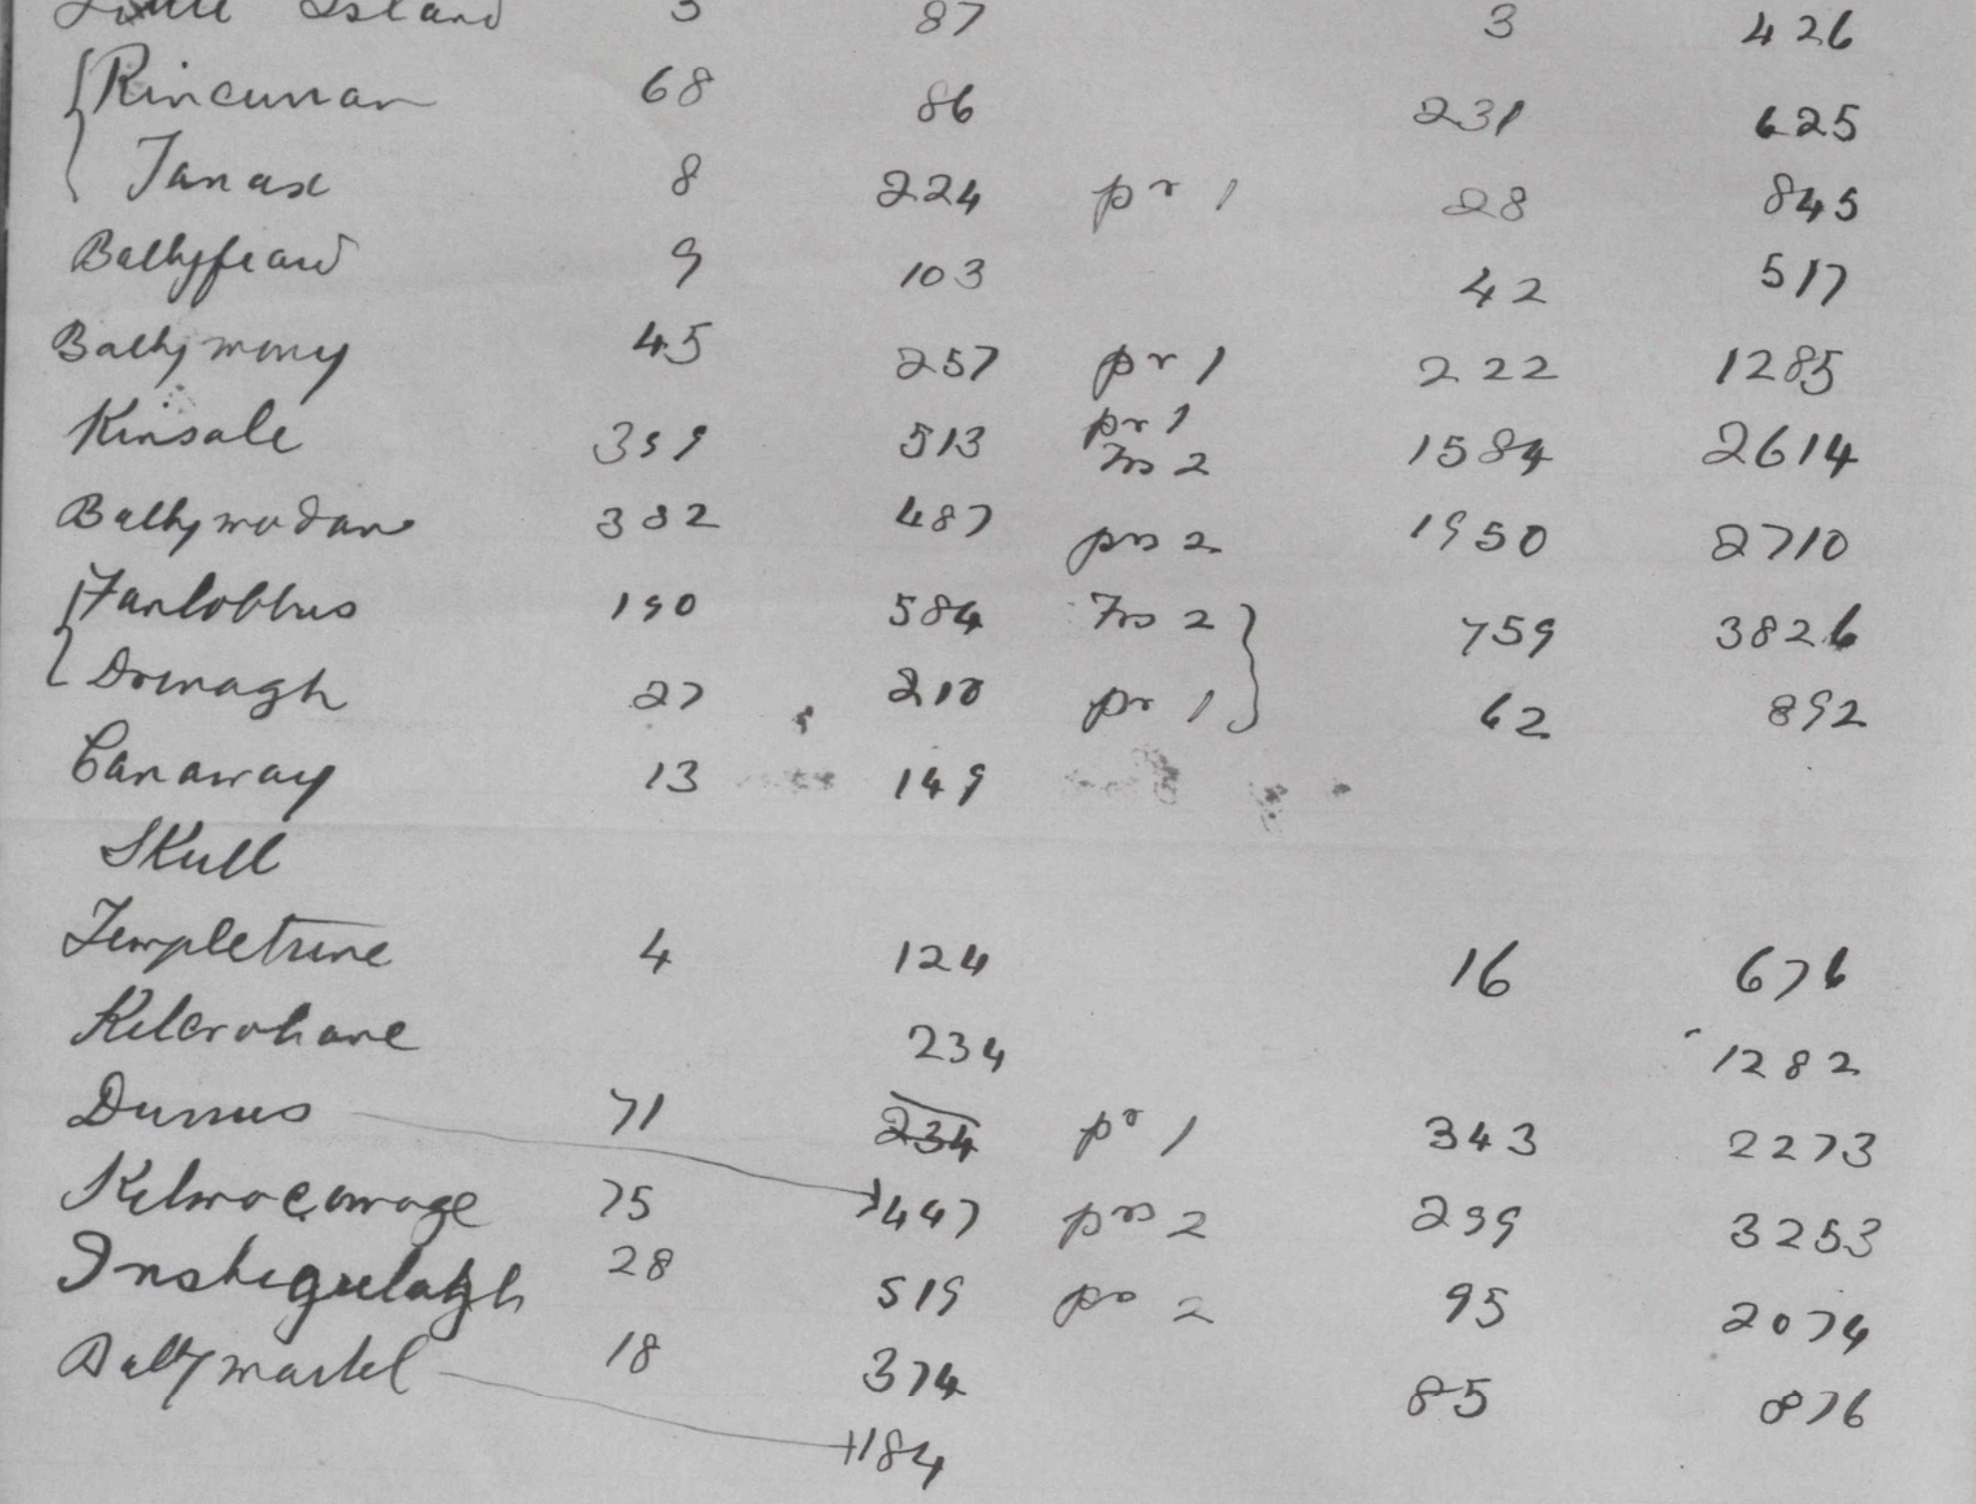 Little Island 3 87 3 426
Rincurran 68 86 231 625
Tanax 8 224 pr 1 28 845
Ballyfeard 9 103 42 517
Ballymoney 45 257 pr 1 222 1285
Kinsale 399 513 pr 1 1584 2614
Frs 2
Ballymodan 382 487 prs 2 1950 2710
Fanlobbus 190 584 Frs 2 759 3826
Drinagh 27 210 pr 1 62 892
Canaway 13 149
Skull
Templetrine 4 124 16 676
Kilcrohane 234 1282
Durrus 71 234 pr 1 343 2273
Kilmocomoge 75 447 prs 2 299 3253
Inshigeelagh 28 519 pr 2 95 2074
Ballymartel 18 374 85 876
184